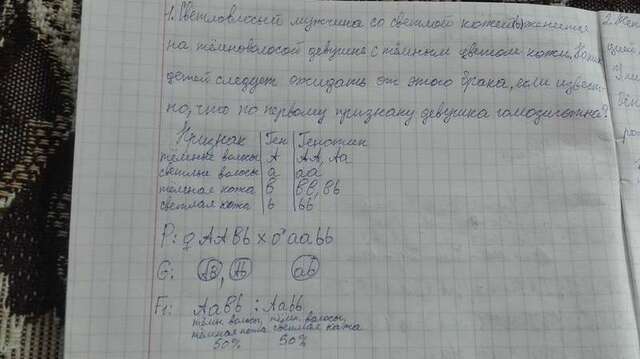 1. Светловолосый мужчина со светлой кожей(b) женится
на тёмноволосой девушке с тёмным цветом кожи. Каких
детей следует ожидать от этого брака, если извест-
но, что по первому признаку девушка гомозиготна?
Признак Ген Генотип
темные волосы А АА, Аа
светлые волосы а аа
тёмная кожа В ВВ, Bb
светлая кожа b bb
P: ♀ AABb x ♂ aabb
G: AB, Ab ab
F1: AaBb : Aabb
тёмн. волосы, тёмн. волосы,
тёмная кожа светлая кожа
50% 50%
2.